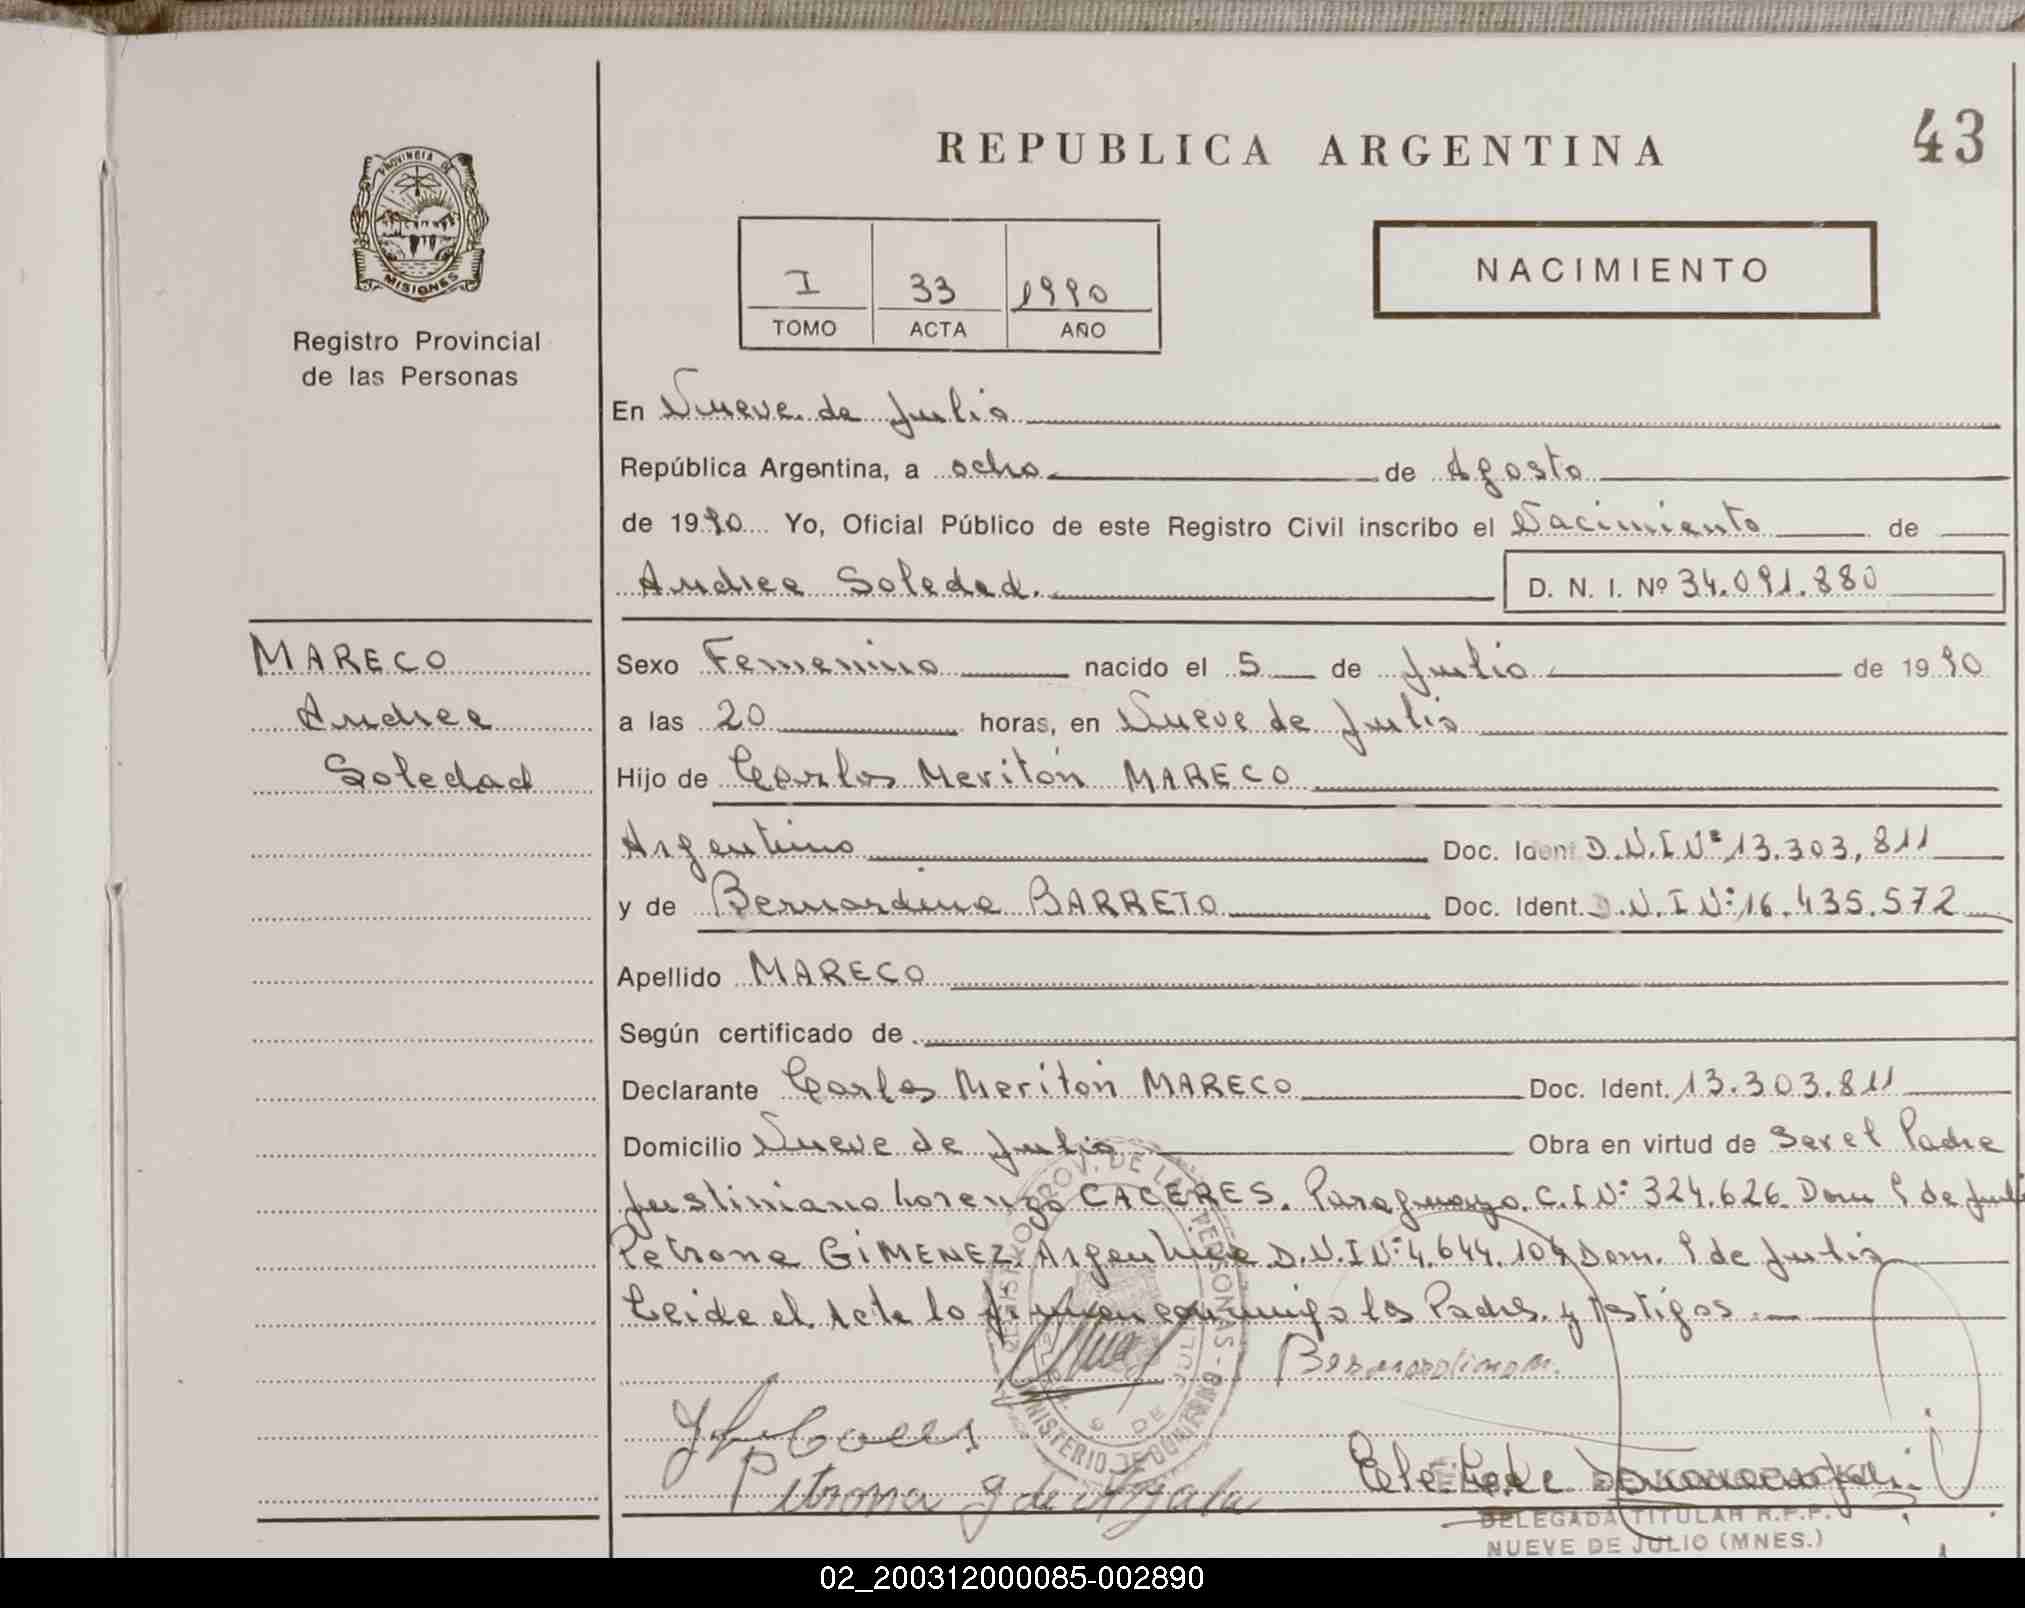 REPUBLICA ARGENTINA
43
PROVINCIA DE
MISIONES
Registro Provincial
de las Personas
I 33 1990
TOMO ACTA AÑO
NACIMIENTO
En Nueve de Julio
República Argentina, a ocho de Agosto
de 1990 Yo, Oficial Público de este Registro Civil inscribo el Nacimiento de
Andrea Soledad. D. N. I. Nº 34.091.880
MARECO
Andrea
Soledad
Sexo Femenino nacido el 5 de Julio de 1990
a las 20 horas, en Nueve de Julio
Hijo de Carlos Meritón MARECO
Argentino Doc. Ident D.N.I Nº 13.303,811
y de Bernardina BARRETO Doc. Ident. D.N.I Nº 16.435.572
Apellido MARECO
Según certificado de
Declarante Carlos Meritón MARECO Doc. Ident. 13.303.811
Domicilio Nueve de Julio Obra en virtud de Ser el Padre
Justiniano Lorenzo CACERES. Paraguayo. C.I Nº 324.626 Dom 9 de Juli
Petrona GIMENEZ. Argentina D.N.I Nº 4.644.104 Dom. 9 de Julio
Leida el Acta lo firman conmigo los Padres y testigos.
Petrona G de Ayala
DELEGADA TITULAR R.P.P.
NUEVE DE JULIO (MNES.)
02_200312000085-002890